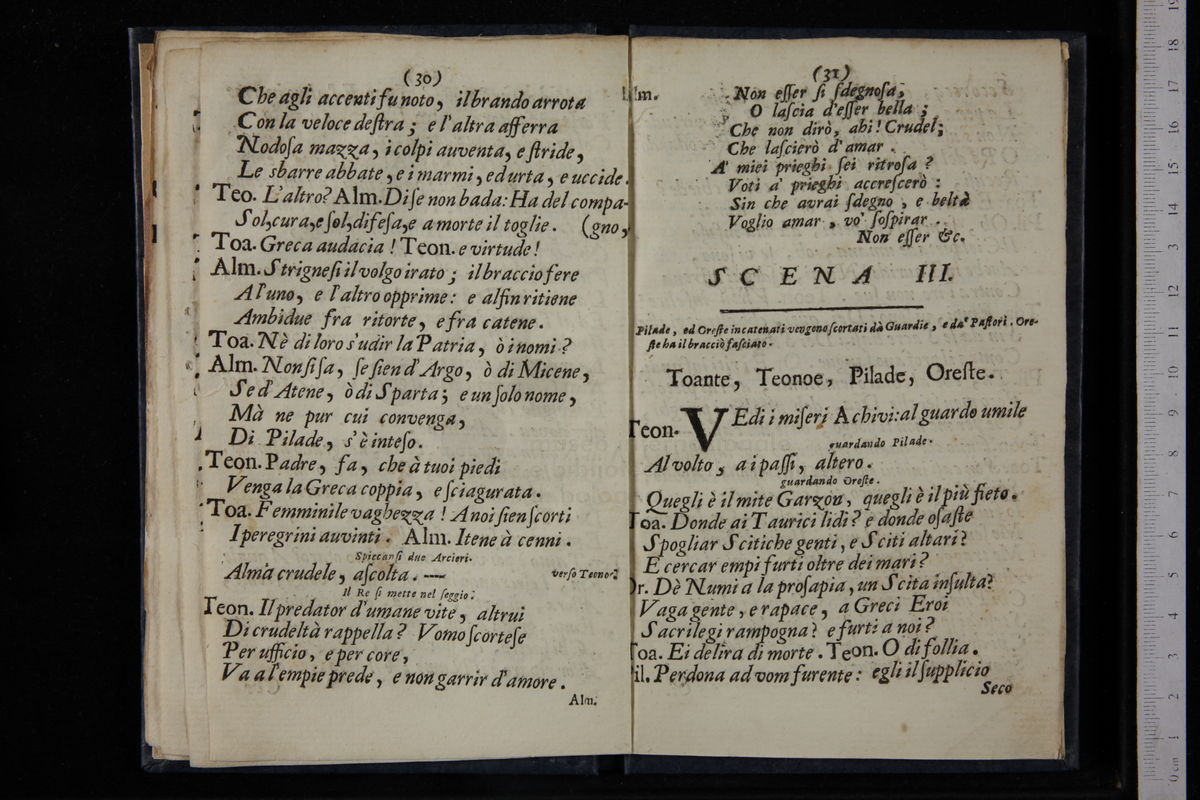 (30)
Che agli accenti fu noto, il brando arrota
Con la veloce destra; e l'altra afferra
Nodosa mazza, i colpi auventa, e stride,
Le sbarre abbate, e i marmi, ed urta, e uccide.
Teo. L'altro? Alm. Di se non bada: Ha del compa-
Sol, cura, e sol, difesa, e a morte il toglie. (gno,
Toa. Greca audacia! Teon. e virtude!
Alm. Strignesi il volgo irato; il braccio fere
A l'uno, e l'altro opprime: e alfin ritiene
Ambidue fra ritorte, e fra catene.
Toa. Nè di loro s'udir la Patria, ò i nomi?
Alm. Non si sa, se sien d'Argo, ò di Micene,
Se d'Atene, ò di Sparta; e un solo nome,
Mà ne pur cui convenga,
Di Pilade, s'è inteso.
Teon. Padre, fa, che à tuoi piedi
Venga la Greca coppia, e sciagurata.
Toa. Femminile vaghezza! A noi sien scorti
I peregrini auvinti. Alm. Itene à cenni.
Spiccansi due Arcieri.
Alma crudele, ascolta. — verso Teonoe
Il Re si mette nel seggio.
Teon. Il predator d'umane vite, altrui
Di crudeltà rappella? Vomo scortese
Per ufficio, e per core,
Va a l'empie prede, e non garrir d'amore.
Alm.
(31)
Alm. Non esser si sdegnosa,
O lascia d'esser bella;
Che non dirò, ahi! Crudel;
Che lascierò d'amar.
A' miei prieghi sei ritrosa?
Voti a' prieghi accrescerò:
Sin che avrai sdegno, e beltà
Voglio amar, vo' sospirar.
Non esser &c.
SCENA III.
Pilade, ed Oreste incatenati vengono scortati dà Guardie, e da' Pastori. Ore-
ste ha il braccio fasciato.
Toante, Teonoe, Pilade, Oreste.
Teon. VEdi i miseri Achivi: al guardo umile
guardando Pilade.
Al volto, a i passi, altero.
guardando Oreste.
Quegli è il mite Garzon, quegli è il più fieto.
Toa. Donde ai Taurici lidi? e donde osaste
Spogliar Scitiche genti, e Sciti altari?
E cercar empi furti oltre dei mari?
Or. Dè Numi a la prosapia, un Scita insulta?
Vaga gente, e rapace, a Greci Eroi
Sacrilegi rampogna? e furti a noi?
Toa. Ei delira di morte. Teon. O di follia.
Pil. Perdona ad vom furente: egli il supplicio
Seco